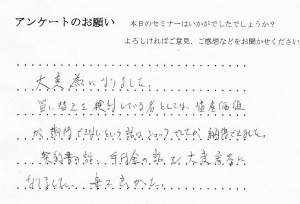 アンケートのお願い 本日のセミナーはいかがでしたでしょうか?
よろしければご意見、ご感想などをお聞かせください
大変為になりました。
買い替えを検討している者としては、資産価値
が期待できないという話はショックでしたが納得できました。
契約書の話、手付金の話も大変参考に
なりました。来て良かった。